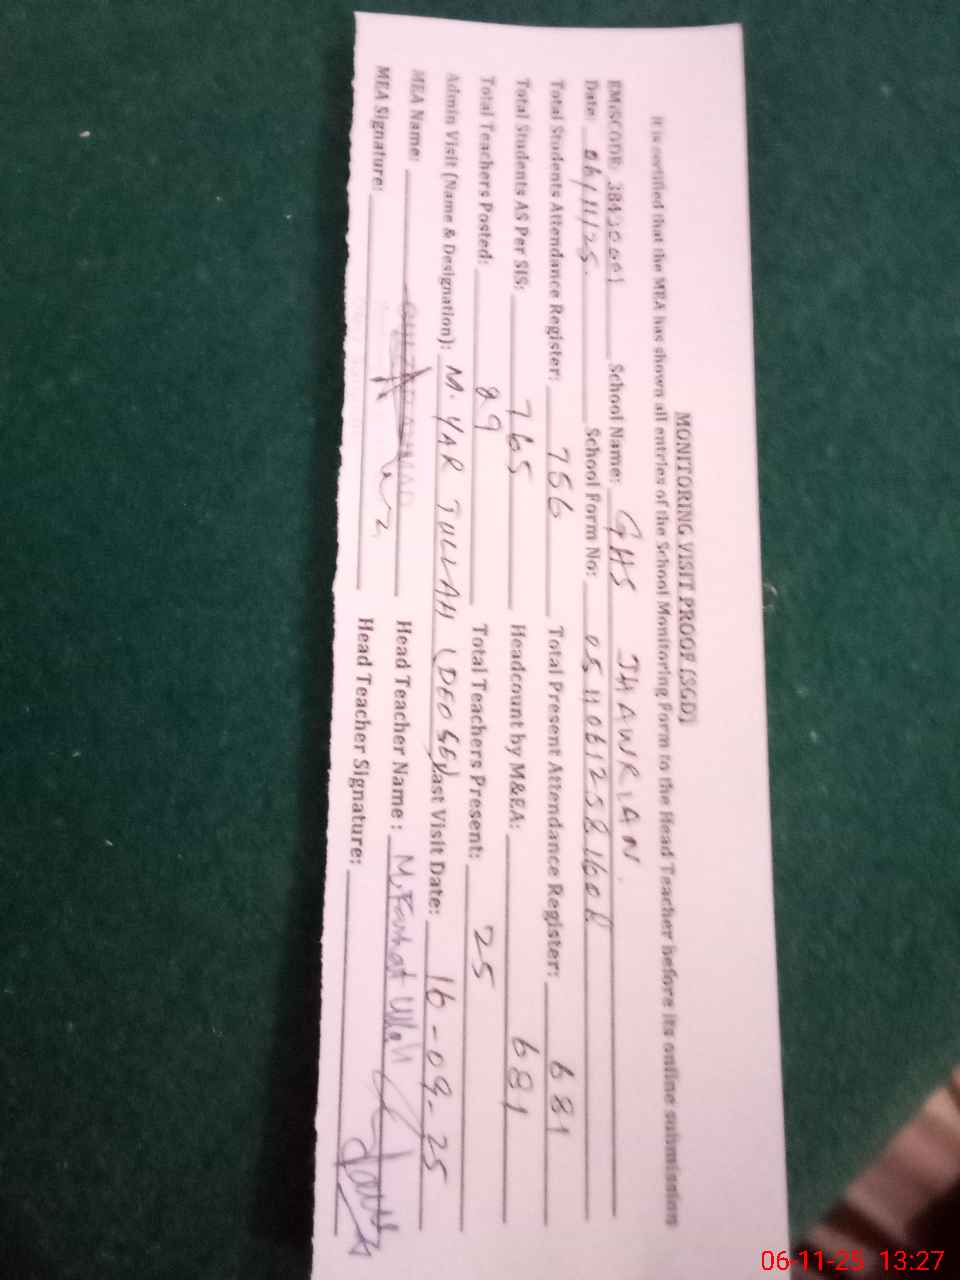 MONITORING VISIT PROOF [SGD]
It is certified that the MEA has shown all entries of the School Monitoring Form to the Head Teacher before its online submission
EMISCODE: School Name: GHS JHAWRIAN.
Date: 06/11/25. School Form No:
Total Students Attendance Register: 756 Total Present Attendance Register: 681
Total Students AS Per SIS: 765 Headcount by M&EA: 681
Total Teachers Posted: 29 Total Teachers Present: 25
Admin Visit (Name & Designation): M. YAR TULLAH (DEO SE) Last Visit Date: 16-09-25
MEA Name: Head Teacher Name: M. Farhat Ullah
MEA Signature: Head Teacher Signature:
06-11-25 13:27